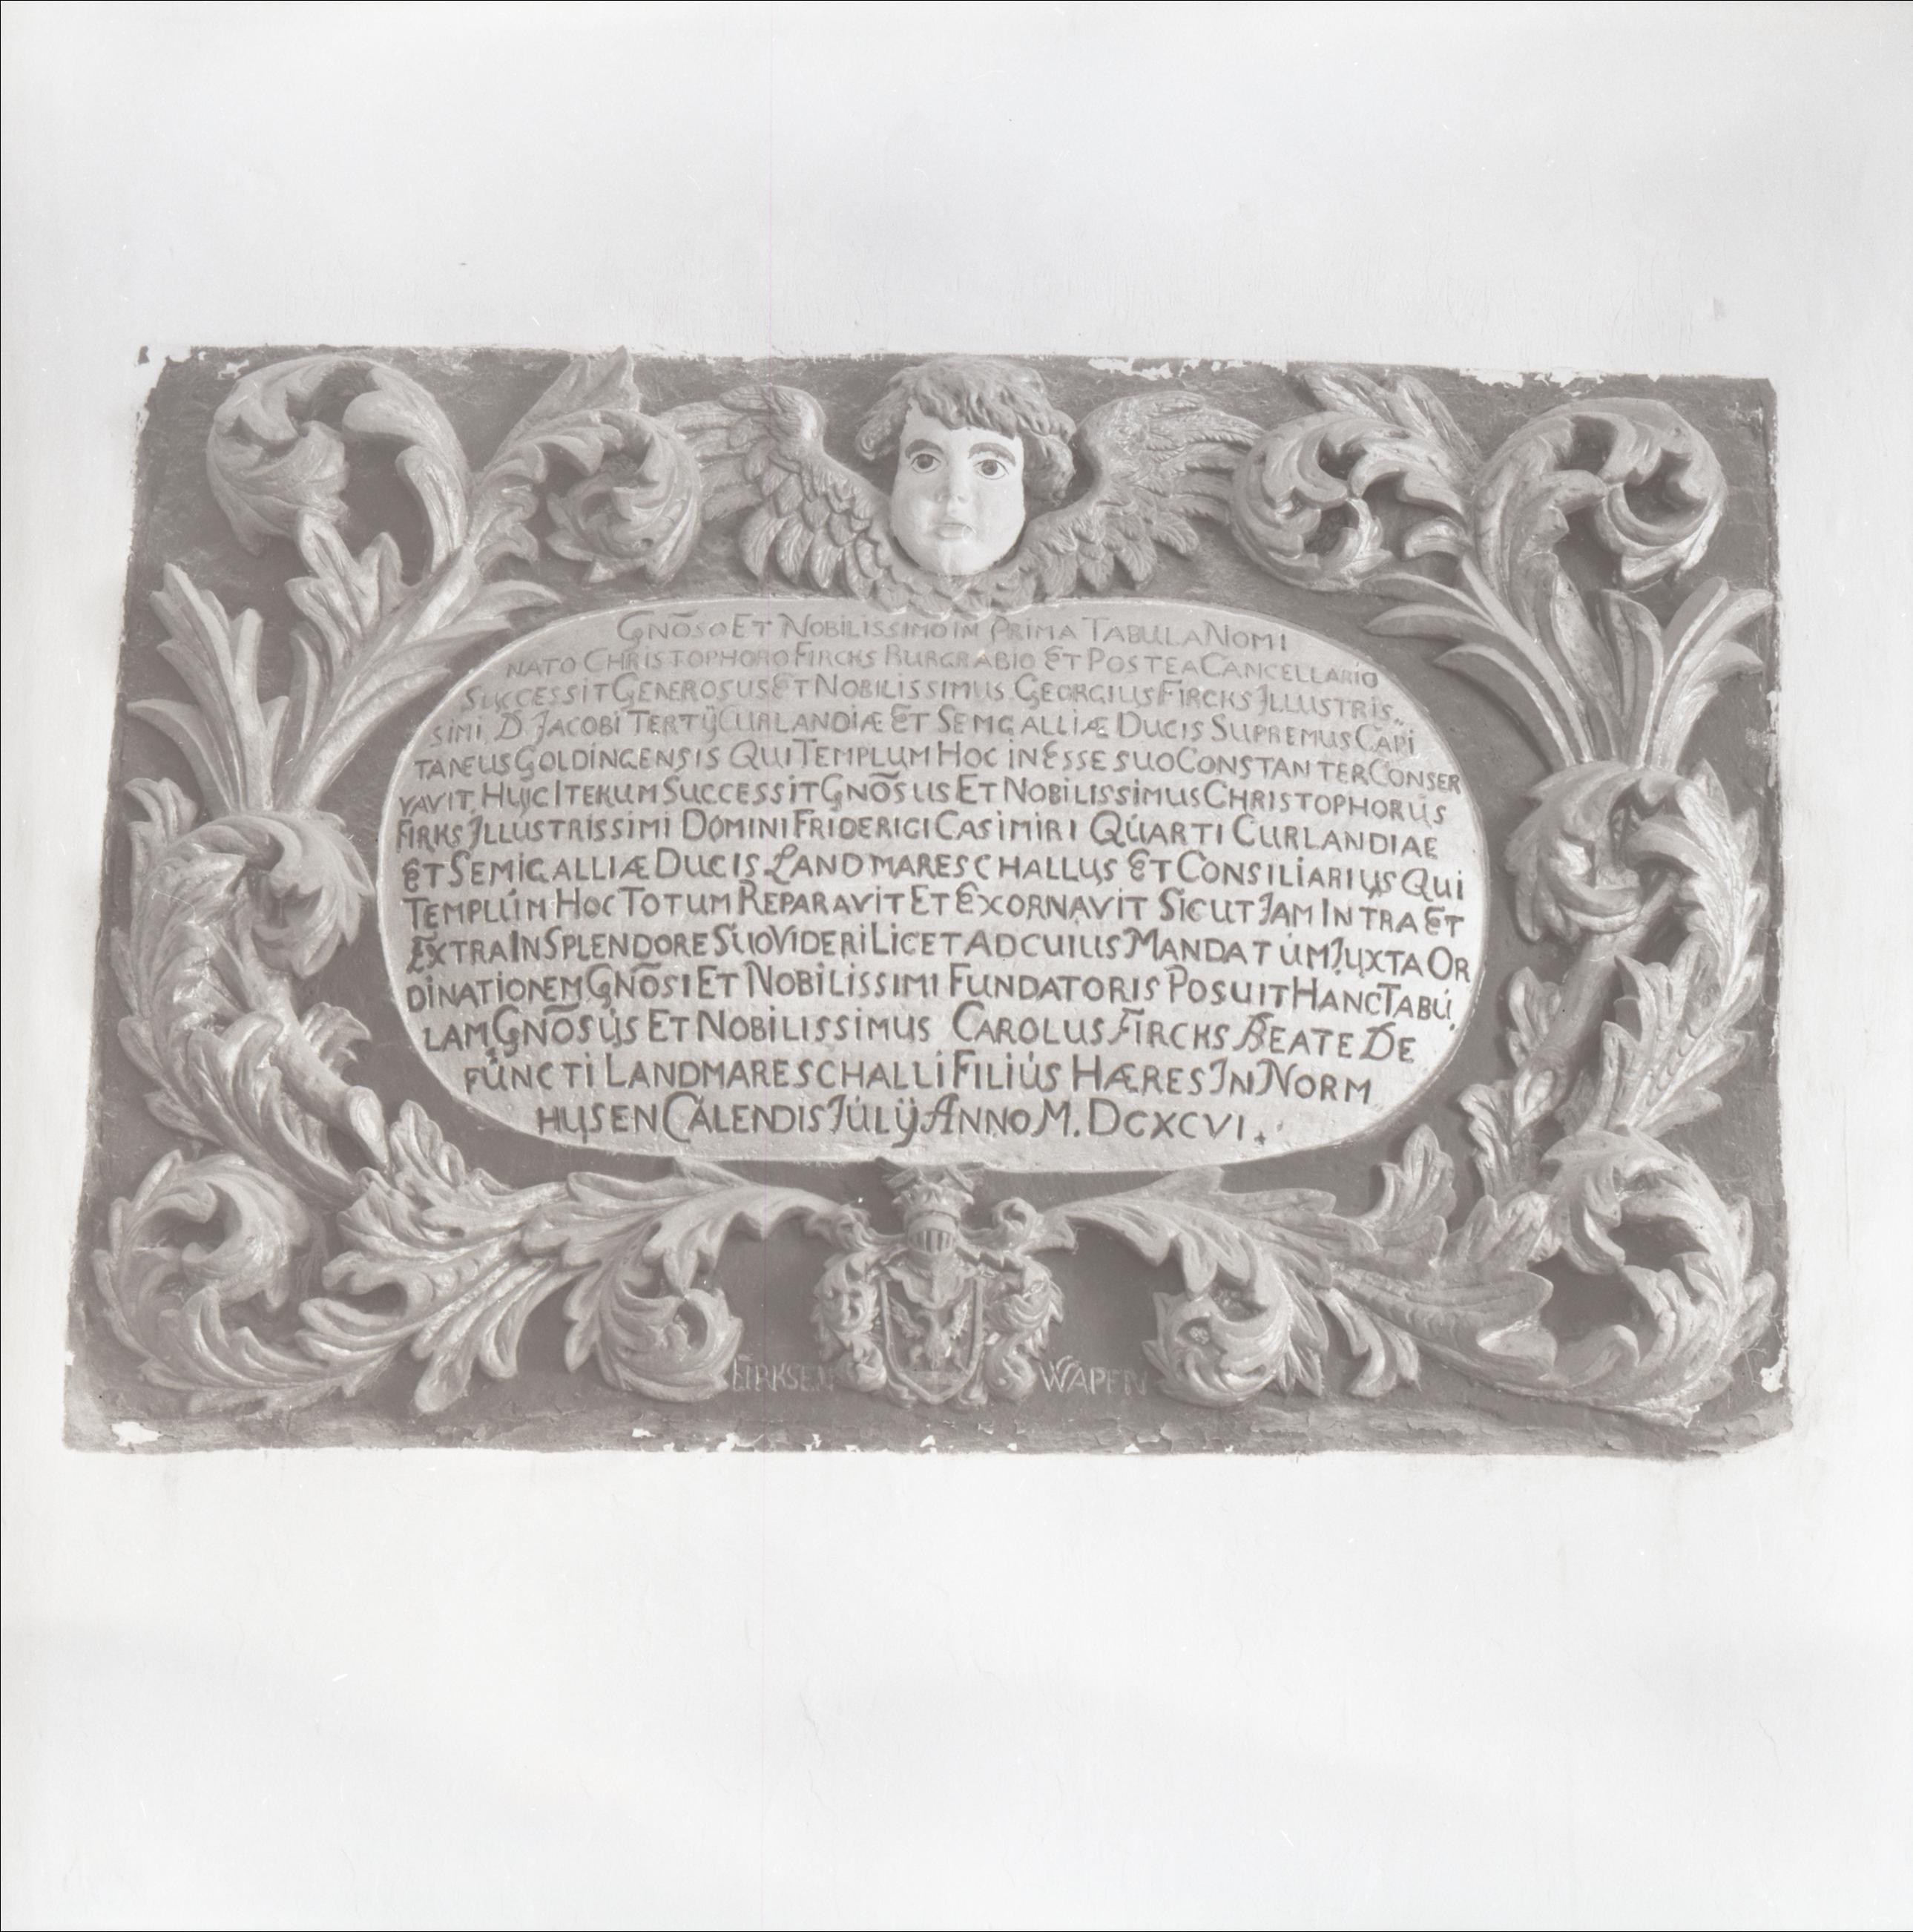 GNÕSO ET NOBILISSIMO IN PRIMA TABULA NOMI
NATO CHRISTOPHORO FIRCKS BURGRABIO ET POSTEA CANCELLARIO
SUCCESSIT GENEROSUS ET NOBILISSIMUS GEORGIUS FIRCKS ILLUSTRIS
SIMI D. JACOBI TERTIJ CURLANDIÆ ET SEMGALLIÆ DUCIS SUPREMUS CAPI
TANEUS GOLDINGENSIS QUI TEMPLUM HOC IN ESSE SUO CONSTANTER CONSER
VAVIT HUIC ITERUM SUCCESSIT GNÕSUS ET NOBILISSIMUS CHRISTOPHORUS
FIRKS ILLUSTRISSIMI DOMINI FRIDERICI CASIMIRI QUARTI CURLANDIAE
ET SEMIGALLIÆ DUCIS LANDMARESCHALLUS ET CONSILIARIUS QUI
TEMPLUM HOC TOTUM REPARAVIT ET EXORNAVIT SICUT JAM INTRA ET
EXTRA IN SPLENDORE SUO VIDERI LICET AD CUIUS MANDATUM IUXTA OR
DINATIONEM GNÕSI ET NOBILISSIMI FUNDATORIS POSUIT HANC TABU
LAM GNÕSUS ET NOBILISSIMUS CAROLUS FIRCKS BEATE DE
FUNCTI LANDMARESCHALLI FILIUS HÆRES IN NORM
HUSEN CALENDIS JULIJ ANNO M. DCXCVI.
FIRKSEN WAPEN